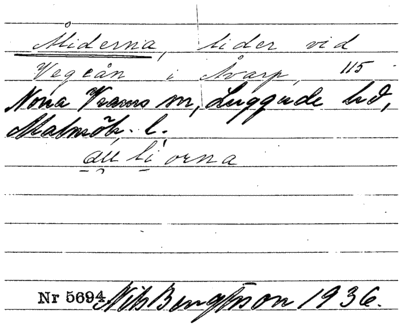 Åliderna, lider vid
Vegeån i Åvarp, 115
Norra Vrams sn, Luggude hd,
Malmöh. l.
Nr 5694 Nils Bengtsson 1936.